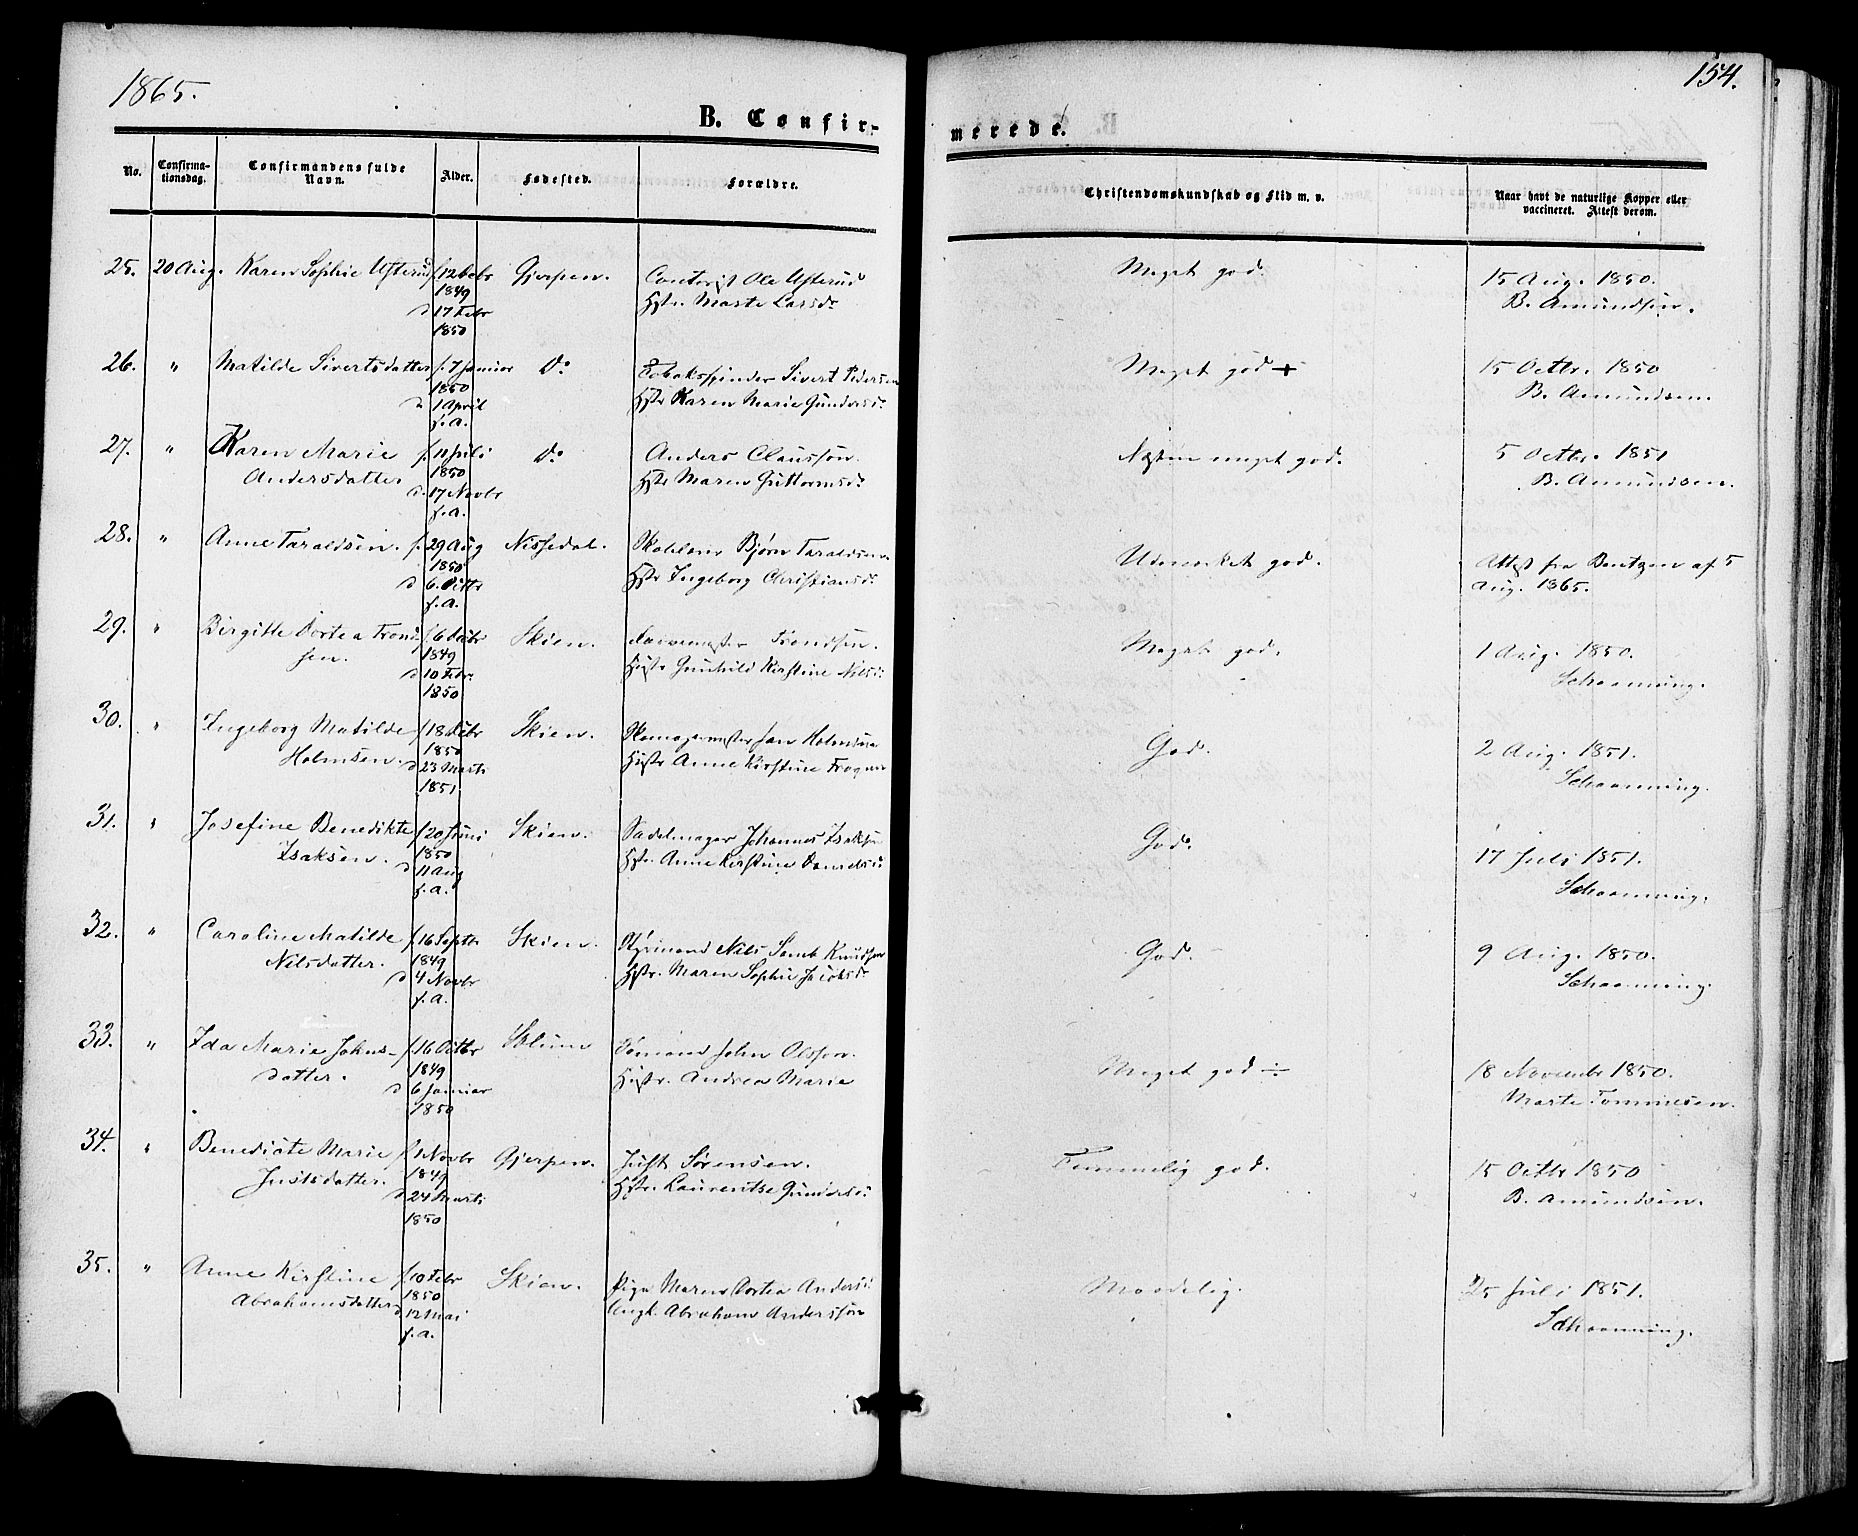 1865.
154.
B. Confir-
merede.
No.
Confirma-
tionsdag.
Confirmandens fulde
Navn.
Alder.
Fødested.
Forældre.
Christendomskundskab og Flid m. v.
Naar havt de naturlige Kopper eller
vaccineret. Attest derom.
25. 20 Aug. Karen Sophie Ufterud f. 12 Febr Gjerpen. Contorist Ole Ufterud Meget god. 15 Aug. 1850.
1849 Hstr. Marte Larsdr B. Amundsen.
d 17 Febr
1850
26. " Matilde Sivertsdatter f. 7 Januar do Tobakspinder Sivert Pedersen Meget god + 15 Octbr. 1850
1850 Hstr Karen Marie Gundersdr B. Amundsen.
d 1 April
f. a.
27. " Karen Marie f. 11 Juli do Anders Claussøn. Næsten meget god. 5 Octbr. 1851
Andersdatter 1850 Hstr Maren Guttormsdr B. Amundsen.
d. 17 Novbr
f. a.
28. " Anne Taraldsen. f. 29 Aug Nissedal. Bjørn Taraldsen Udmerket god. Attest fra Bentzen af 5
1850 Hstr Ingeborg Christiansdr Aug. 1865.
d 6. Octbr
f. a.
29. " Birgitte Dortea Trond- f. 6 Skien. Farvemester Trondsen. Meget god. 1 Aug. 1850.
sen. 1849 Hustr Gunhild Kirstine Nilsd Schaanning.
d 10 Febr.
1850
30. " Ingeborg Matilde f. 18 Skien. Skomagermester Jan Holmsen God. 2 Aug. 1851.
Holmsen. 1850 Hustr Anne Kirstine Schaanning.
d 23 Marts
1851
31. " Josefine Benedikte f. 20 Juni Skien. Sadelmager Johannes Isaksen God. 17 Juli 1851.
Isaksen. 1850 Hstr. Anne Kirstine Schaanning.
d 11 Aug
f. a.
32. " Caroline Matilde f. 16 Septbr Skien. Styrmand Nils Knudsen God. 9 Aug. 1850.
Nilsdatter. 1849 Hstr. Maren Sophie Jacobsdr Schaanning.
d 4 Novbr
f. a.
33. " Ida Marie Johns- f. 16 Octbr Solum Sømand John Olsson. Meget god ÷ 18 Novembr 1850.
datter. 1849 Hustr. Andrea Marie Marte Tommesen.
d 6 Januar
1850
34. " Benedicte Marie f. 1 Novbr Gjerpen. Just Sørensen. Temmelig god. 15 Octbr 1850
Justsdatter. 1849 Hstr. Laurentse Gundersd B. Amundsen.
d 24 Marts
1850
35. " Anne Kirstine f. 10 Febr Skien. Pige Maren Dortea Andersd Maadelig. 25 Juli 1851.
Abrahamsdatter 1850 Ungk. Abraham Anderssøn Schaanning.
d 12 Mai
f. a.